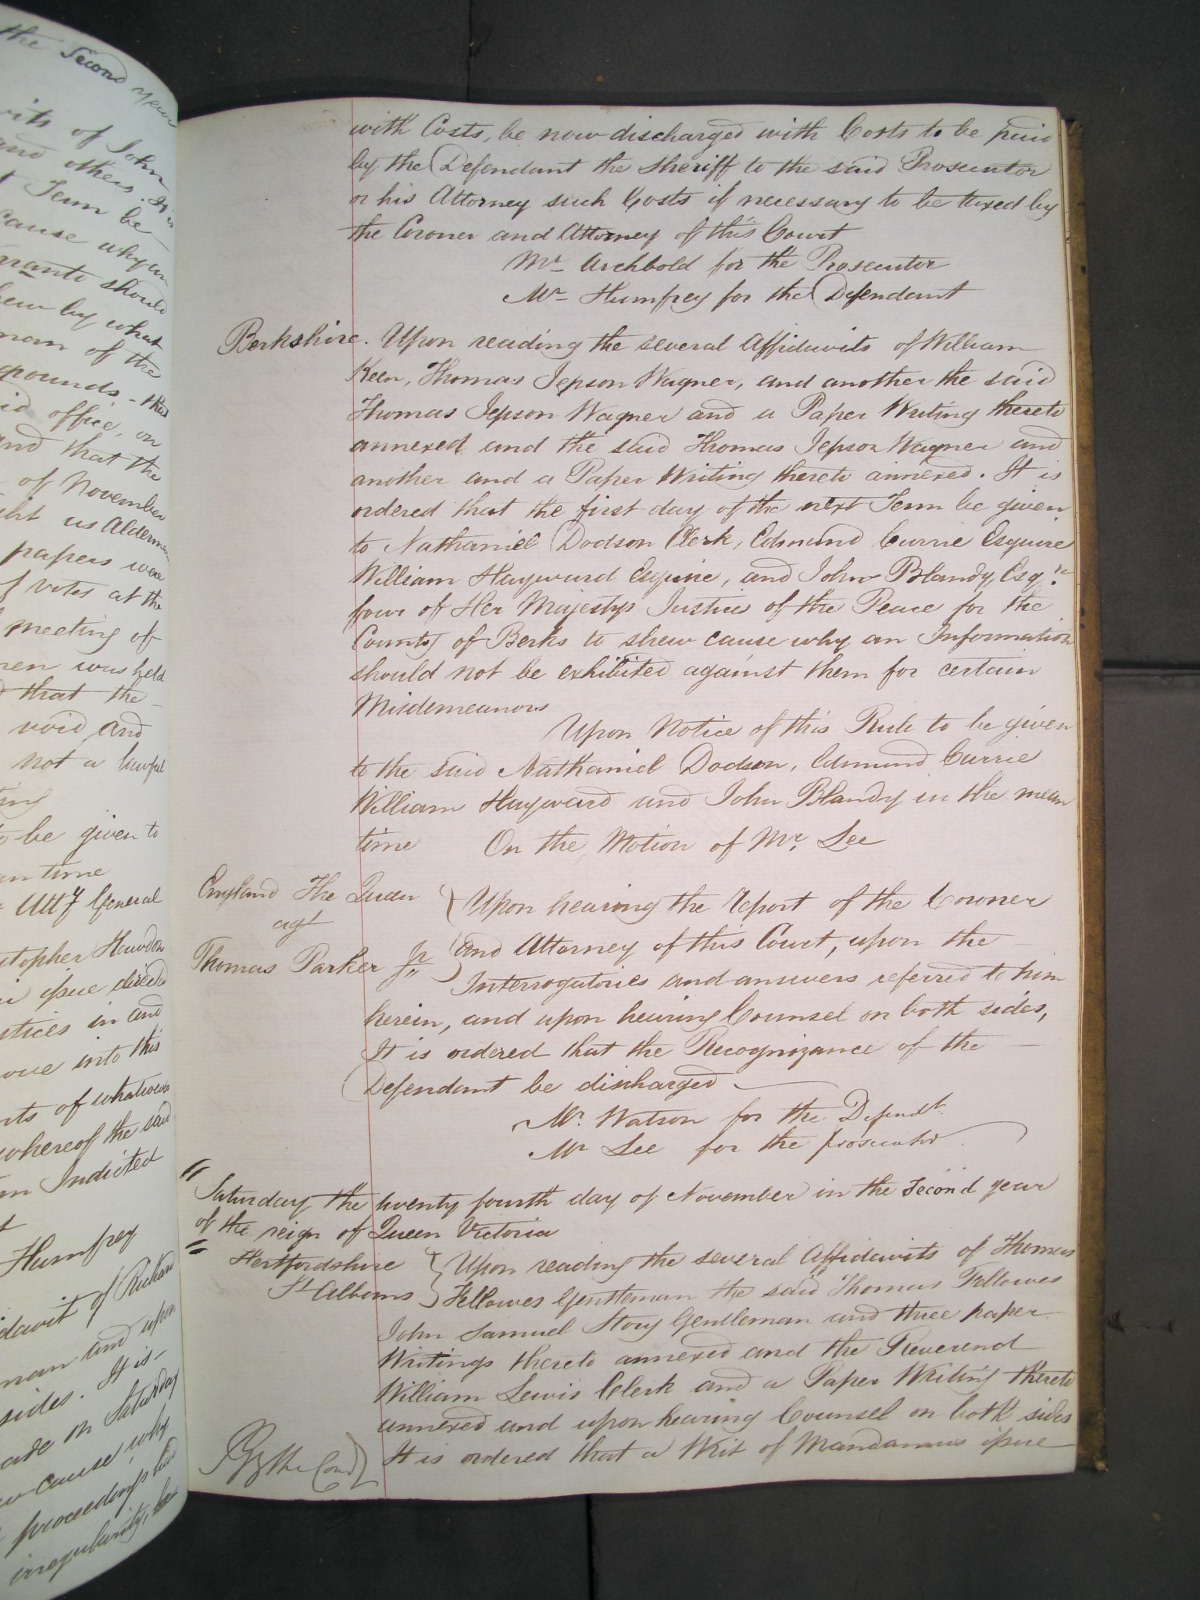 the Second year
vits of John
and others It is
t Term be
cause why an
rranto should
hew by what
man of the
pounds - this
id office, on
and that the
of November
ht us Aldermen
papers were
f votes at the
meeting of
men was held
d that the
void and
not a lawful
to be given to
an time
Atty General
stopher Hawdon
issue directed
stices in and
ove into this
nts of whatsoever
whereof the said
an Indicted
Humfrey
davit of Richard
man and upon
sides. It is
ade on Saturday
w cause, why
proceedings had
irregularity, be
with Costs, be now discharged with Costs to be paid
by the Defendant the Sheriff to the said Prosecutor
or his Attorney such Costs if necessary to be taxed by
the Coroner and Attorney of this Court
Mr. Archbold for the Prosecutor
Mr. Humfrey for the Defendant
Berkshire. Upon reading the several Affidavits of William
Keen, Thomas Jepson Wagner, and another the said
Thomas Jepson Wagner and a Paper Writing thereto
annexed and the said Thomas Jepson Wagner and
another and a Paper Writing thereto annexed. It is
ordered that the first day of the next Term be given
to Nathaniel Dodson Clerk, Edmund Currie Esquire
William Hayward Esquire, and John Blandy, Esqre.
four of Her Majestys Justices of the Peace for the
County of Berks to shew cause why an Information
should not be exhibited against them for certain
Misdemeanors
Upon Notice of this Rule to be given
to the said Nathaniel Dodson, Edmund Currie
William Hayward and John Blandy in the mean
time On the Motion of Mr. Lee
England The Queen } Upon hearing the Report of the Coroner
agt
Thomas Parker Jr } and Attorney of this Court, upon the
Interrogatories and answers referred to him
herein, and upon hearing Counsel on both sides,
It is ordered that the Recognizance of the
Defendant be discharged
Mr. Watson for the Defendt.
Mr Lee for the prosecutor
Saturday the twenty fourth day of November in the Second year
of the reign of Queen Victoria
Hertfordshire } Upon reading the several Affidavits of Thomas
St Albans } Fellowes Gentleman the said Thomas Fellowes
John Samuel Story Gentleman and three paper
Writings thereto annexed and the Reverend
William Lewis Clerk and a Paper Writing thereto
annexed and upon hearing Counsel on both sides
It is ordered that a Writ of Mandamus issue
By the Court